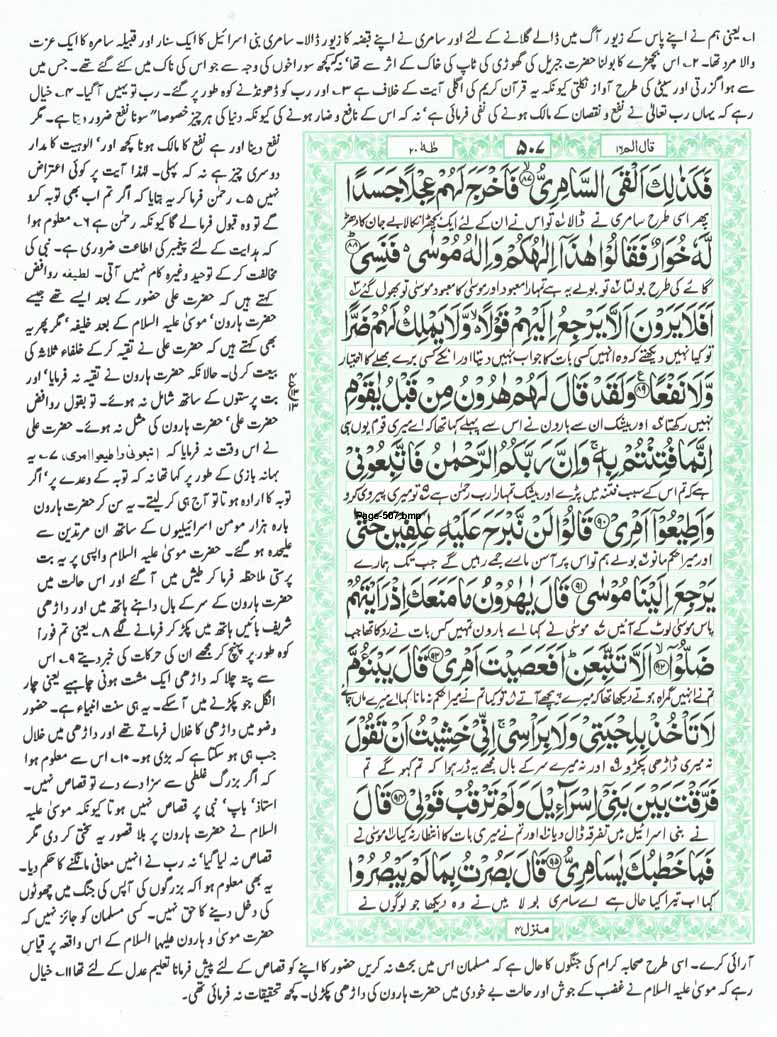 ۱۔ یعنی ہم نے اپنے پاس کے زیور آگ میں ڈالے گلانے کے لئے اور سامری نے اپنے قبضہ کا زیور ڈالا۔ سامری بنی اسرائیل کا ایک سنار اور قبیلہ سامرہ کا ایک عزت
والا مرد تھا۔ ۲۔ اس بچھڑے کا بولنا حضرت جبریل کی گھوڑی کی ٹاپ کی خاک کے اثر سے تھا‘ نہ کہ کچھ سوراخوں کی وجہ سے جو اس کی ناک میں کئے گئے تھے۔ جس میں
سے ہوا گزرتی اور سیٹی کی طرح آواز نکلتی کیونکہ یہ قرآن کریم کی اگلی آیت کے خلاف ہے ۳۔ اور رب کو ڈھونڈنے کوہ طور پر گئے۔ رب تو یہیں آ گیا۔ ۴۔ خیال
رہے کہ یہاں رب تعالیٰ نے نفع و نقصان کے مالک ہونے کی نفی فرمائی ہے‘ نہ کہ اس کے نافع و ضار ہونے کی کیونکہ دنیا کی ہر چیز خصوصاً سونا نفع ضرور دیتا ہے۔ مگر
نفع دینا اور ہے نفع کا مالک ہونا کچھ اور‘ الوہیت کا مدار
دوسری چیز ہے نہ کہ پہلی۔ لہٰذا آیت پر کوئی اعتراض
نہیں ۵۔ رحمٰن فرما کر یہ بتایا کہ اگر تم اب بھی توبہ کرو
گے تو وہ قبول فرمالے گا کیونکہ رحمٰن ہے ۶۔ معلوم ہوا
کہ ہدایت کے لئے پیغمبر کی اطاعت ضروری ہے۔ نبی کی
مخالفت کر کے توحید وغیرہ کام نہیں آتی۔ لطیفہ روافض
کہتے ہیں کہ حضرت علی حضور کے بعد ایسے تھے جیسے
حضرت ہارون‘ موسیٰ علیہ السلام کے بعد خلیفہ‘ مگر پھر یہ
بھی کہتے ہیں کہ حضرت علی نے تقیہ کر کے خلفاء ثلاثہ کی
بیعت کر لی۔ حالانکہ حضرت ہارون نے تقیہ نہ فرمایا‘ اور
بت پرستوں کے ساتھ شامل نہ ہوئے۔ تو بقول روافض
حضرت علی‘ حضرت ہارون کی مثل نہ ہوئے۔ حضرت علی
نے اس وقت نہ فرمایا کہ (اتبعونی و اطیعوا امری) ۷۔ یہ
بہانہ بازی کے طور پر کہا تھا نہ کہ توبہ کے وعدے پر‘ اگر
توبہ کا ارادہ ہوتا تو آج ہی کر لیتے۔ یہ سن کر حضرت ہارون
بارہ ہزار مومن اسرائیلیوں کے ساتھ ان مرتدین سے
علیحدہ ہو گئے۔ حضرت موسیٰ علیہ السلام واپسی پر یہ بت
پرستی ملاحظہ فرما کر طیش میں آ گئے اور اس حالت میں
حضرت ہارون کے سر کے بال داہنے ہاتھ میں اور داڑھی
شریف بائیں ہاتھ میں پکڑ کر فرمانے لگے ۸۔ یعنی تم فوراً
کوہ طور پر پہنچ کر مجھے ان کی حرکات کی خبر دیتے ۹۔ اس
سے پتہ چلا کہ داڑھی ایک مشت ہونی چاہیے یعنی چار
انگل جو پکڑنے میں آ سکے۔ یہ ہی سنت انبیاء ہے۔ حضور
وضو میں داڑھی کا خلال فرماتے تھے اور داڑھی میں خلال
جب ہی ہو سکتا ہے کہ بڑی ہو۔ ۱۰۔ اس سے معلوم ہوا
کہ اگر بزرگ غلطی سے سزا دے دے تو قصاص نہیں۔
استاذ‘ باپ‘ نبی پر قصاص نہیں ہوتا کیونکہ موسیٰ علیہ
السلام نے حضرت ہارون پر بلا قصور یہ سختی کر دی مگر
قصاص نہ لیا گیا‘ نہ رب نے انہیں معافی مانگنے کا حکم دیا۔
یہ بھی معلوم ہوا کہ بزرگوں کی آپس کی جنگ میں چھوٹوں
کی دخل دینے کا حق نہیں۔ کسی مسلمان کو جائز نہیں کہ
حضرت موسیٰ و ہارون علیہما السلام کے اس واقعہ پر قیاس
قال الم ۱۶
۵۰۷
طٰهٰ ۲۰
فَكَذٰلِكَ اَلْقَى السَّامِرِیُّ ۙ﴿۸۷﴾ فَاَخْرَجَ لَهُمْ عِجْلًا جَسَدًا
پھر اسی طرح سامری نے ڈالا ۱ تو اس نے ان کے لئے ایک بچھڑا نکالا بے جان کا دھڑ
لَّهٗ خُوَارٌ فَقَالُوْا هٰذَاۤ اِلٰهُكُمْ وَ اِلٰهُ مُوْسٰى ۬ فَنَسِیَ ﴿۸۸﴾
گائے کی طرح بولتا ۲ تو بولے یہ ہے تمہارا معبود اور موسیٰ کا معبود موسیٰ تو بھول گئے ۳
اَفَلَا یَرَوْنَ اَلَّا یَرْجِعُ اِلَیْهِمْ قَوْلًا ۙ۬ وَّ لَا یَمْلِكُ لَهُمْ ضَرًّا
تو کیا نہیں دیکھتے کہ وہ انہیں کسی بات کا جواب نہیں دیتا اور انکے کسی برے بھلے کا اختیار
وَّ لَا نَفْعًا ﴿۸۹﴾ وَ لَقَدْ قَالَ لَهُمْ هٰرُوْنُ مِنْ قَبْلُ یٰقَوْمِ
نہیں رکھتا ۴ اور بیشک ان سے ہارون نے اس سے پہلے کہا تھا کہ اے میری قوم یوں ہی
اِنَّمَا فُتِنْتُمْ بِهٖ ۚ وَ اِنَّ رَبَّكُمُ الرَّحْمٰنُ فَاتَّبِعُوْنِیْ
ہے کہ تم اس کے سبب فتنہ میں پڑے اور بیشک تمہارا رب رحمٰن ہے ۵ تو میری پیروی کرو
وَ اَطِیْعُوْۤا اَمْرِیْ ﴿۹۰﴾ قَالُوْا لَنْ نَّبْرَحَ عَلَیْهِ عٰكِفِیْنَ حَتّٰى
Page-507.bmp
اور میرا حکم مانو ۶ بولے ہم تو اس پر آسن مارے جمے رہیں گے جب تک ہمارے
یَرْجِعَ اِلَیْنَا مُوْسٰى ﴿۹۱﴾ قَالَ یٰهٰرُوْنُ مَا مَنَعَكَ اِذْ رَاَیْتَهُمْ
پاس موسیٰ لوٹ کے آئیں ۷ موسیٰ نے کہا اے ہارون تمہیں کس بات نے روکا تھا جب
ضَلُّوْۤا ۙ﴿۹۲﴾ اَلَّا تَتَّبِعَنِ ؕ اَفَعَصَیْتَ اَمْرِیْ ﴿۹۳﴾ قَالَ یَبْنَؤُمَّ
تم نے انہیں گمراہ ہوتے دیکھا تھا کہ میرے پیچھے آتے ۸ تو کیا تم نے میرا حکم نہ مانا کہا اے میرے ماں جائے
لَا تَاْخُذْ بِلِحْیَتِیْ وَ لَا بِرَاْسِیْ ۚ اِنِّیْ خَشِیْتُ اَنْ تَقُوْلَ
نہ میری ڈاڑھی پکڑو ۹ اور نہ میرے سر کے بال مجھے یہ ڈر ہوا کہ تم کہو گے تم
فَرَّقْتَ بَیْنَ بَنِیْۤ اِسْرَآءِیْلَ وَ لَمْ تَرْقُبْ قَوْلِیْ ﴿۹۴﴾ قَالَ
نے بنی اسرائیل میں تفرقہ ڈال دیا ۱۰ اور تم نے میری بات کا انتظار نہ کیا ۱۱ موسیٰ نے
فَمَا خَطْبُكَ یٰسَامِرِیُّ ﴿۹۵﴾ قَالَ بَصُرْتُ بِمَا لَمْ یَبْصُرُوْا
کہا اب تیرا کیا حال ہے اے سامری بولا میں نے وہ دیکھا جو لوگوں نے
منزل ۴
آرائی کرے۔ اسی طرح صحابہ کرام کی جنگوں کا حال ہے کہ مسلمان اس میں بحث نہ کریں حضور کا اپنے کو قصاص کے لئے پیش فرمانا تعلیم عدل کے لئے تھا ۱۱۔ خیال
رہے کہ موسیٰ علیہ السلام نے غضب کے جوش اور حالت بے خودی میں حضرت ہارون کی داڑھی پکڑ لی۔ کچھ تحقیقات نہ فرمائی تھی۔